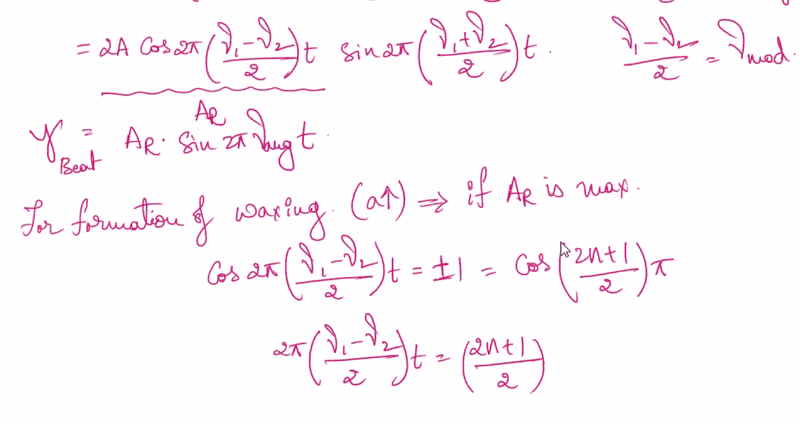 = 2A Cos 2π (ν₁ - ν₂ / 2) t sin 2π (ν₁ + ν₂ / 2) t. ν₁ - ν₂ / 2 = ν mod.
A_R
y Beat = A_R . sin 2π ν avg t.
For formation of waxing. (a↑) ⇒ if A_R is max.
Cos 2π (ν₁ - ν₂ / 2) t = ±1 = Cos (2n+1 / 2) π
2π (ν₁ - ν₂ / 2) t = (2n+1 / 2)